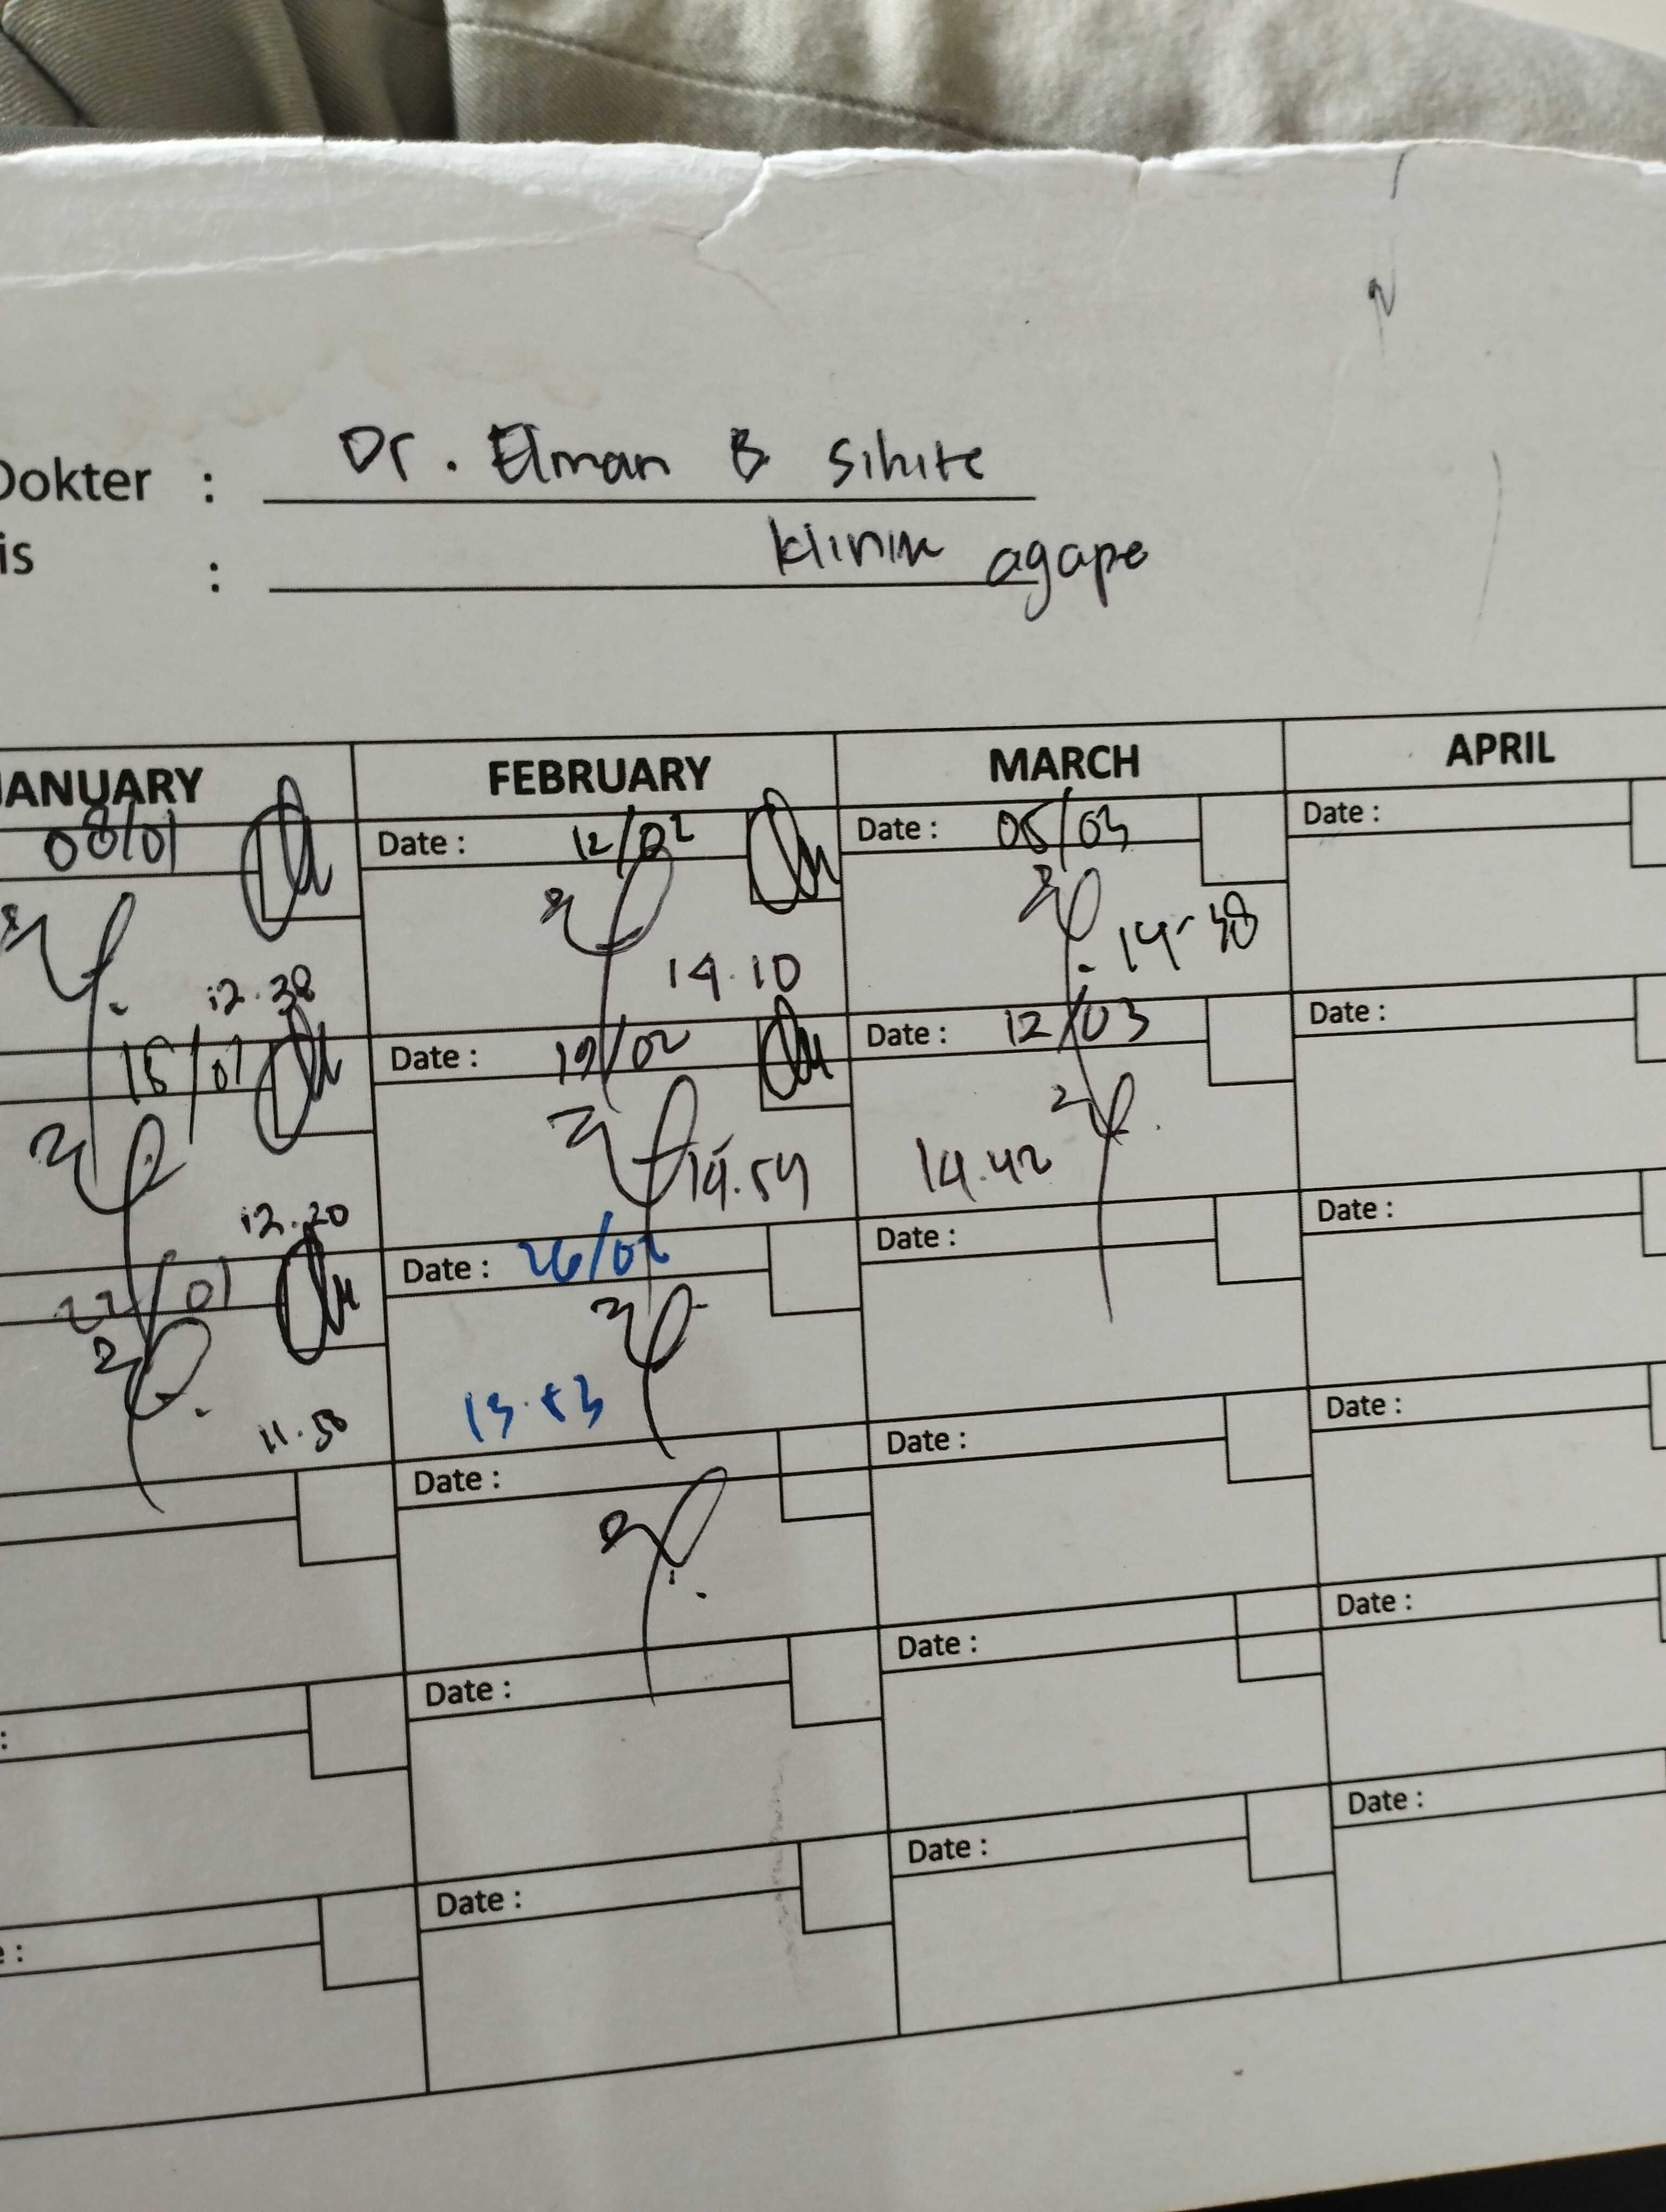 Dokter : Dr. Elman B Sihite
is : Klinik agape
JANUARY FEBRUARY MARCH APRIL
08/01 Date : 12/02 Date : 05/03 Date :
12.38 14.10 14-38
15/01 Date : 19/02 Date : 12/03 Date :
12.20 14.54 14.42
22/01 Date : 26/02 Date : Date :
11.50 13.53
Date : Date : Date :
: Date : Date : Date :
e : Date : Date : Date :